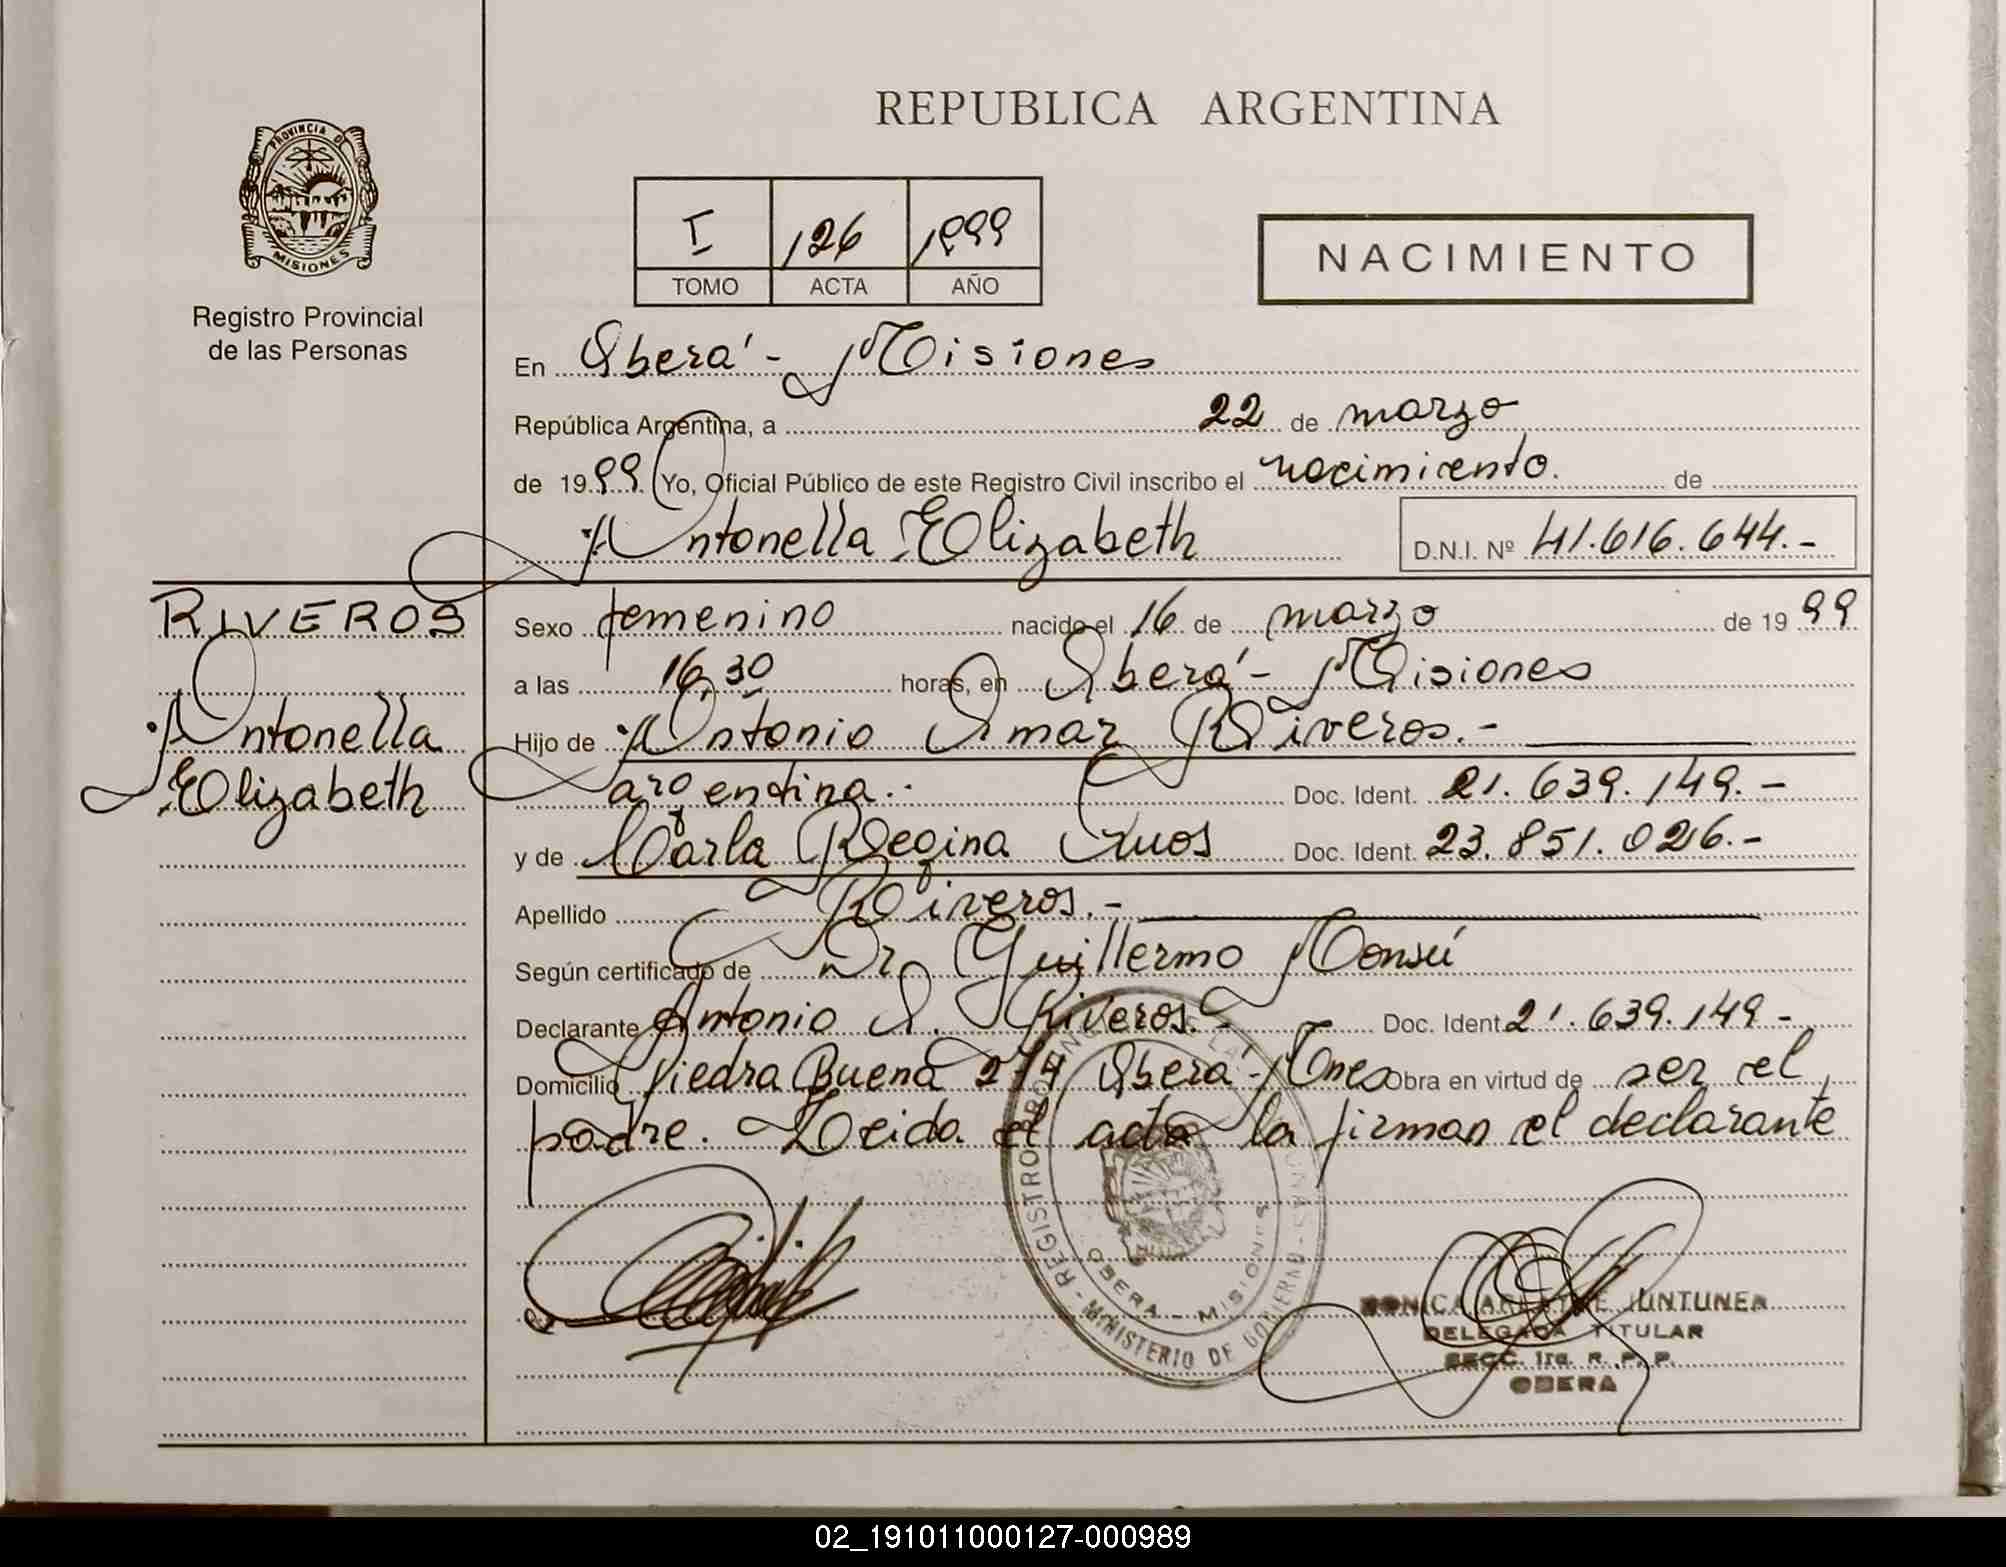 REPUBLICA ARGENTINA
PROVINCIA DE
MISIONES
Registro Provincial
de las Personas
I 126 1999
TOMO ACTA AÑO
NACIMIENTO
En Oberá - Misiones
República Argentina, a 22 de marzo
de 1999 Yo, Oficial Público de este Registro Civil inscribo el nacimiento. de
Antonella Elizabeth D.N.I. Nº 41.616.644.-
RIVEROS
Antonella
Elizabeth
Sexo femenino nacido el 16 de marzo de 1999
a las 16,30 horas, en Oberá - Misiones
Hijo de Antonio Omar Riveros.-
argentina.. Doc. Ident. 21.639.149.-
y de Carla Regina Doc. Ident. 23.851.026.-
Apellido Riveros.-
Según certificado de Dr. Guillermo
Declarante Antonio O. Riveros.- Doc. Ident. 21.639.149-
Domicilio Piedra Buena Oberá - Mnes Obra en virtud de ser el
padre. Leida el acta la firman el declarante
REGISTRO PROVINCIAL DE LAS PERSONAS - MINISTERIO DE GOBIERNO -
OBERA - MISIONES
JUNTUNEN
DELEGADA TITULAR
SECC. 1ra. R. P. P.
OBERA
02_191011000127-000989